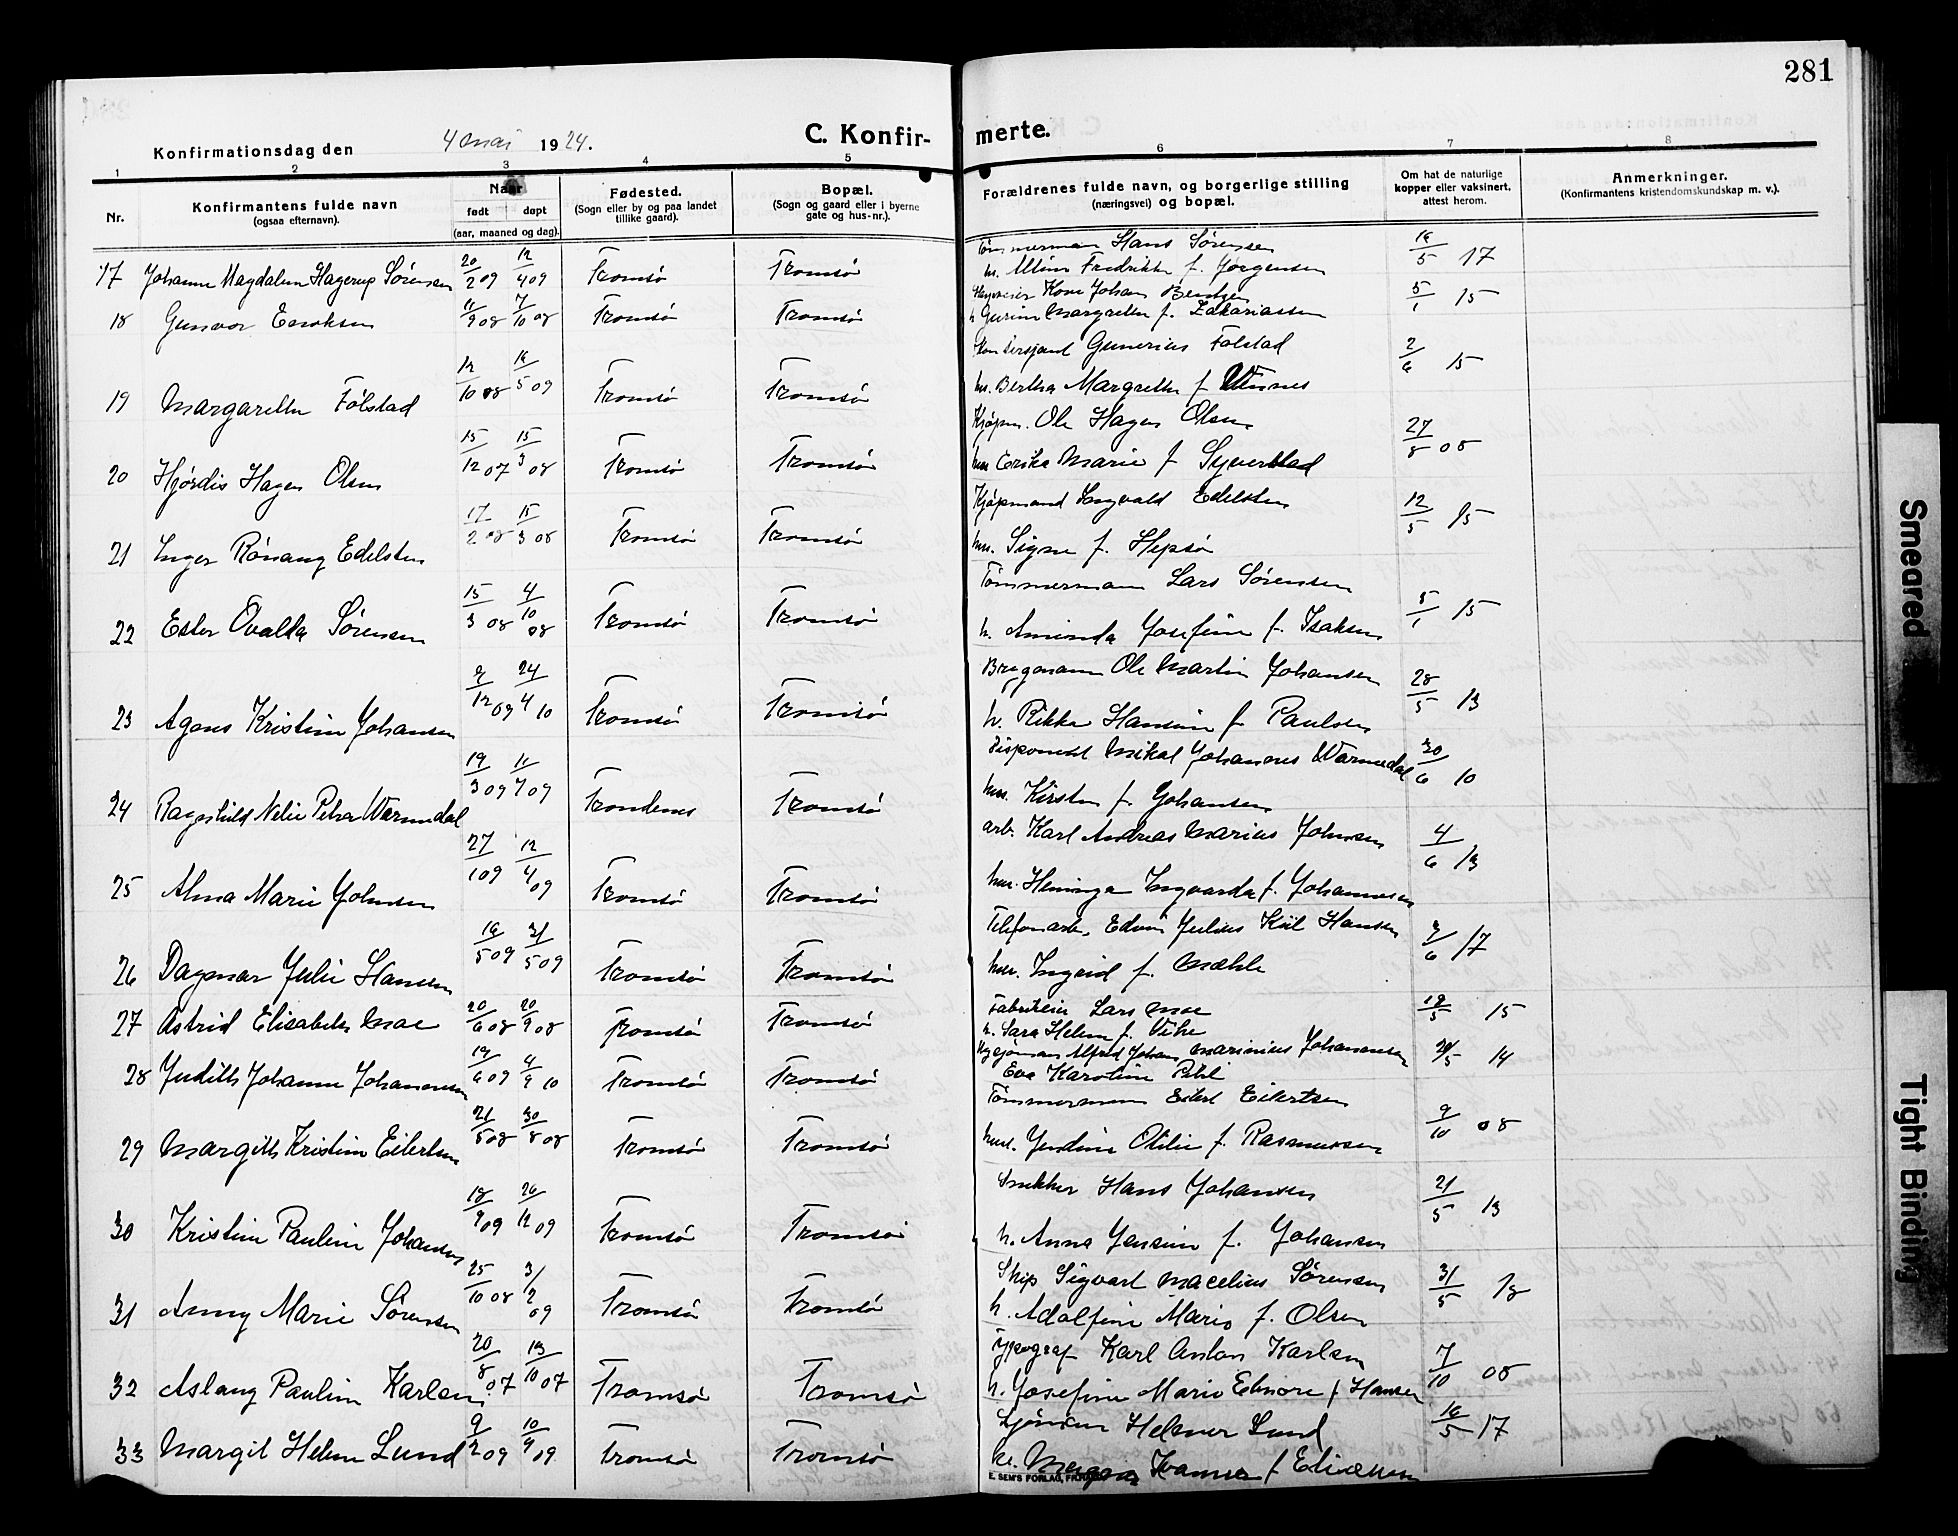 281
Konfirmationsdag den 4 mai 1924.
C. Konfir- merte.
1 2 3 4 5 6 7 8
Nr.
Konfirmantens fulde navn
(ogsaa efternavn).
Naar
født døpt
(aar, maaned og dag).
Fødested.
(Sogn eller by og paa landet
tillike gaard).
Bopæl.
(Sogn og gaard eller i byerne
gate og hus-nr.).
Forældrenes fulde navn, og borgerlige stilling
(næringsvei) og bopæl.
Om hat de naturlige
kopper eller vaksinert,
attest herom.
Anmerkninger.
(Konfirmantens kristendomskundskap m. v.).
17 Johanne Magdalene Hagerup Sørensen 20/2 09 12/4 09 Tromsø Tromsø Tømmermann Hans Sørensen 16/5 17
h. Fredrikke f. Jørgensen
18 Gunvor 11/9 08 7/10 08 Tromsø Tromsø Johan 5/1 15
h. Margrethe f. Zakariassen
19 Margarethe Følstad 12/10 08 16/5 09 Tromsø Tromsø Gunerius Følstad 2/6 15
hu. Bertha Margrethe f.
20 Hjørdis Hagen Olsen 15/12 07 15/3 08 Tromsø Tromsø Kjøpm. Ole Hagen Olsen 27/8 08
hu Erika Marie f Syverstad
21 Inger Rønaug Edelsten 17/2 08 15/3 08 Tromsø Tromsø Kjøpmand Ingvald Edelsten 12/5 15
hu. Signe f. Hepsø
22 Ester Ovalda Sørensen 15/3 08 4/10 08 Tromsø Tromsø Tømmermann Lars Sørensen 5/1 15
h. Aminda Josefine f. Isaksen
23 Agnes Kristine Johansen 2/12 09 24/4 10 Tromsø Tromsø Bryggemann Ole Martin Johansen 28/5 13
h. Rikke Hansine f. Paulsen
24 Ragnhild Nelie Petra Warmedal 19/3 09 11/7 09 Trondenes Tromsø Disponent Mikal Johannes Warmedal 30/6 10
hu. Kirsten f. Johansen
25 Alma Marie Johnsen 27/1 09 12/4 09 Tromsø Tromsø arb. Karl Andreas Marius Johnsen 4/6 13
hu. Heninga Ingvarda f. Johannesen
26 Dagmar Julie Hansen 16/5 09 31/5 09 Tromsø Tromsø Telefonarb. Edvin Julius Kiil Hansen 2/6 17
hu. Ingrid f. Mæhle
27 Astrid Elisabeth Moe 20/6 08 20/9 08 Tromsø Tromsø Lars Moe 12/5 15
h. Sara Helene f. Vike
28 Judith Johanne Johannessen 19/6 09 4/9 10 Tromsø Tromsø Alfred Johan Marinius Johannessen 14
Eva Karoline
29 Margith Kristine Eilertsen 21/5 08 30/8 08 Tromsø Tromsø Tømmermann Eilert Eilertsen 9/10 08
hu. Jentine Otilie f. Rasmussen
30 Kristine Pauline Johansen 18/9 09 26/12 09 Tromsø Tromsø Snekker Hans Johansen 21/5 13
h. Anna Jensine f. Johansen
31 Anny Marie Sørensen 25/10 08 3/2 09 Tromsø Tromsø Skip Sigvart Macelius Sørensen 31/5 18
h. Adolfine Marie f. Olsen
32 Aslaug Pauline Karlsen 20/8 07 13/10 07 Tromsø Tromsø Typograf Karl Anton Karlsen 7/10 08
h. Josefine Marie Elnore f Hansen
33 Margit Helene Lund 9/2 09 10/9 09 Tromsø Tromsø Helmer Lund 16/5 17
f
E. SEM'S FORLAG,
Smeared
Tight Binding